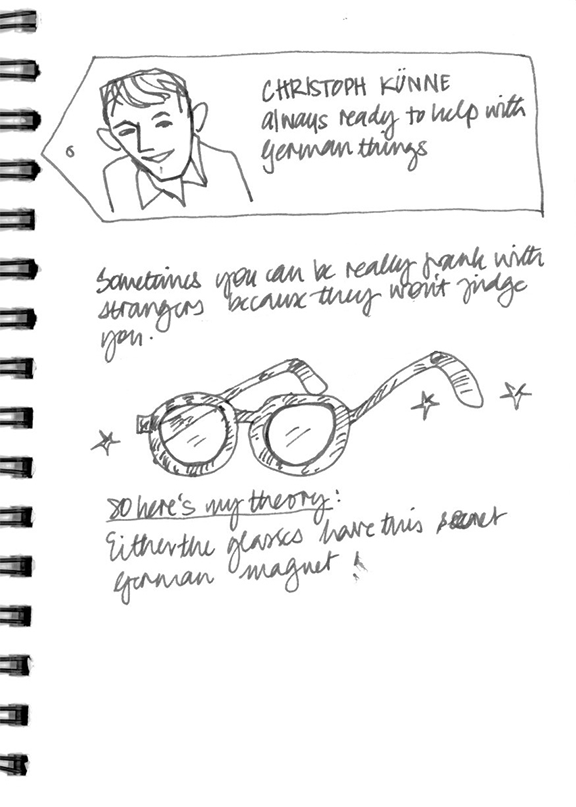 CHRISTOPH KÜNNE
always ready to help with
German things
Sometimes you can be really frank with
strangers because they won't judge
you.
so here's my theory:
Either the glasses have this secret
German magnet!